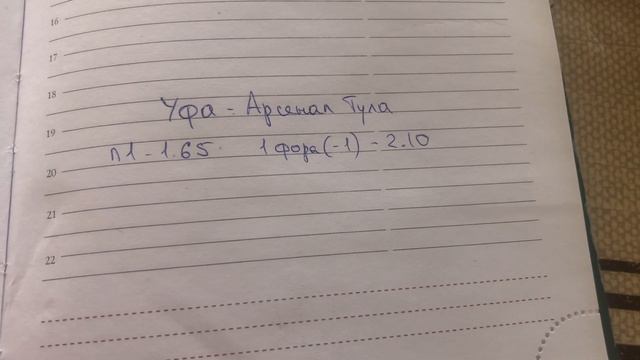 16
17
18
Уфа - Арсенал Тула
19
п1 - 1.65. 1 фора (-1) - 2.10
20
21
22